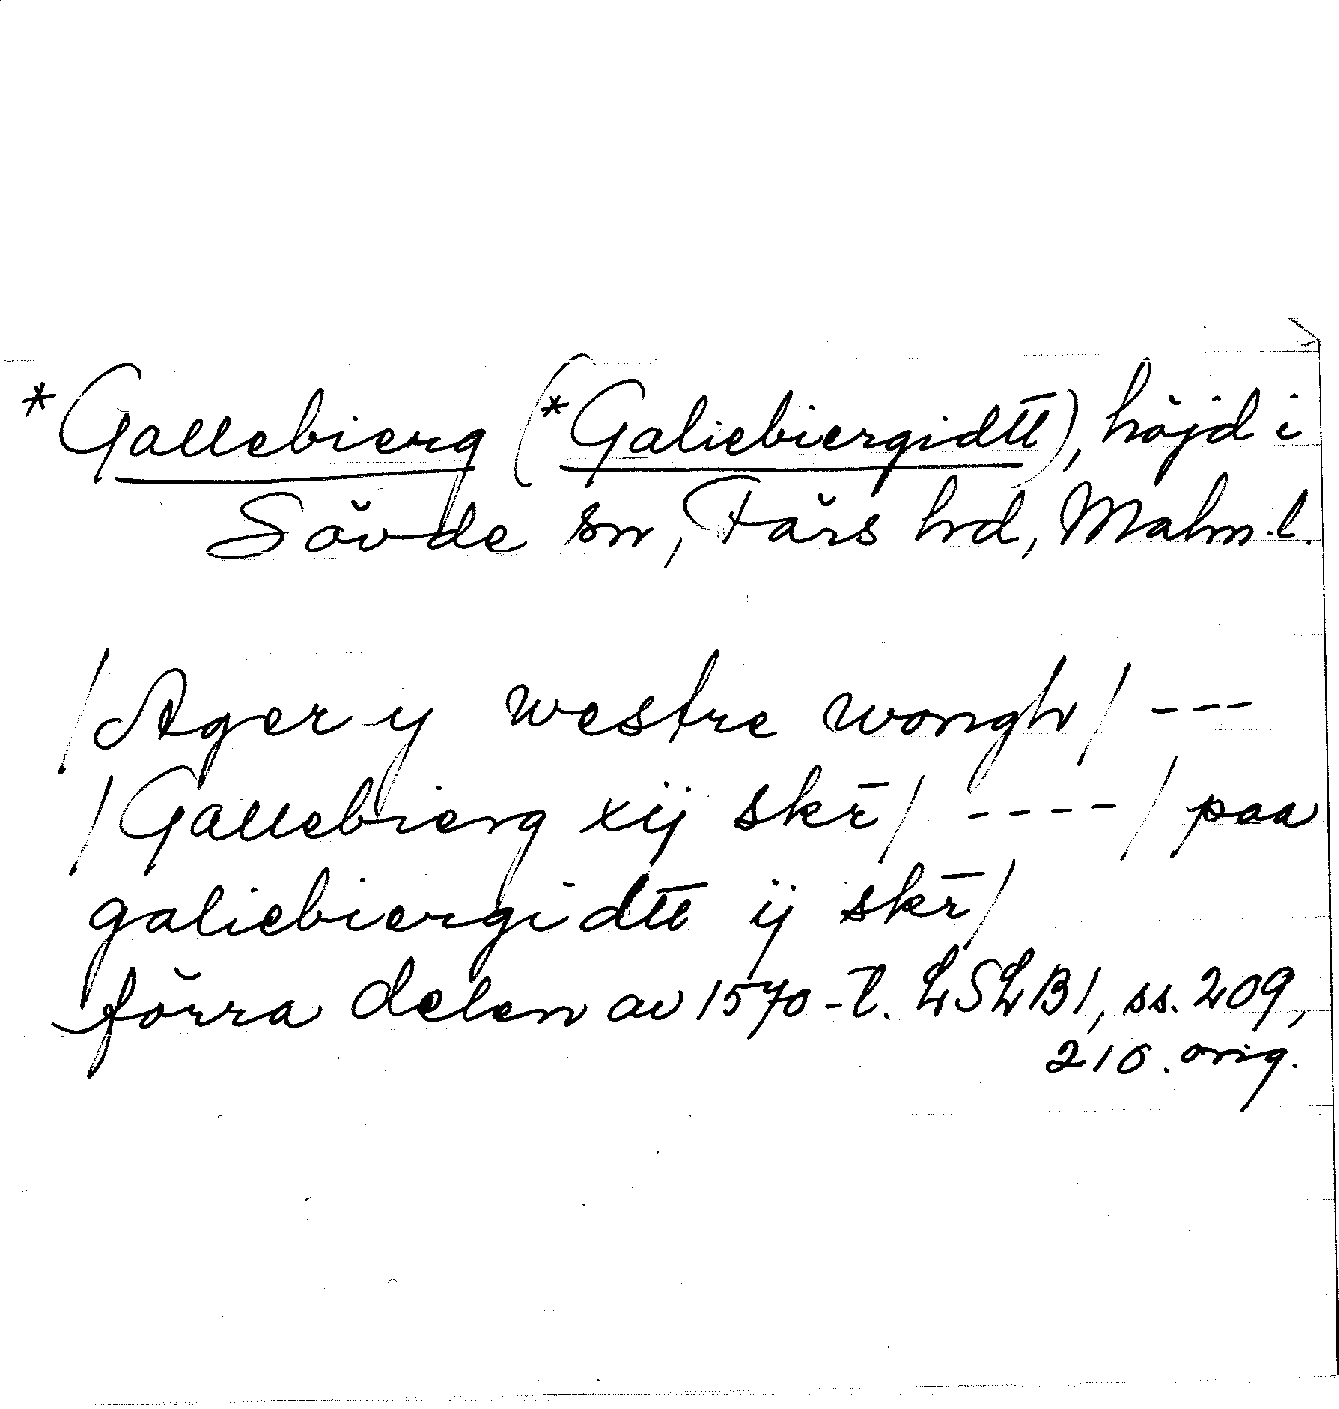 *Gallebierg (*Galiebiergidtt), höjd i
Sövde sn, Färs hd, Malm.l.
/Ager y westre wongh/ ---
/Gallebierg xij skr̄/ ----/ paa
galiebiergidtt ij skr̄/
förra delen av 1570-t. LSLB1, ss. 209,
210. orig.